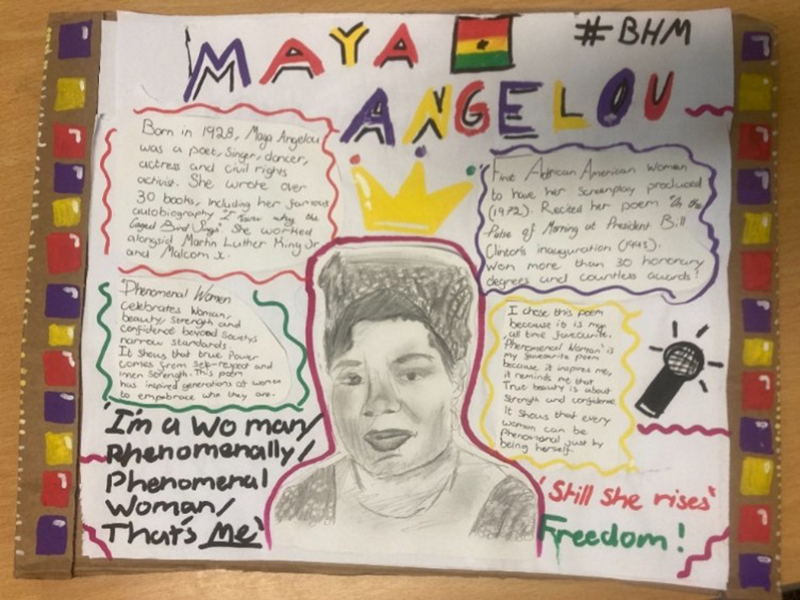 MAYA
#BHM
ANGELOU
Born in 1928, Maya Angelou
was a poet, singer, dancer,
actress and civil rights
activist. She wrote over
30 books, including her famous
autobiography "I know why the
Caged Bird Sings" She worked
alongsid Martin Luther King Jr
and Malcom x.
First African American Woman
to have her Screenplay produced
(1972). Recited her poem "On the
Pulse of Morning at President Bill
Clinton's inauguration (1993).
Won more than 30 honorary
degrees and countless awards!
'Phenomenal Women
celebrates Woman,
beauty, strength and
confidence beyond Society's
narrow standards
It shows that true Power
comes from self-respect and
inner strength. This poem
has inspired generations of women
to empobrace who they are.
I chose this poem
because it is my
all time favourite.
Phenomenal Woman is
my favourite poem
because, it inspires me,
it reminds me that
True beauty is about
strength and confidence
It shows that every
woman can be
Phenomenal just by
being herself.
'I'm a Woman/
Phenomenally/
Phenomenal
Woman/
That's Me'
'Still she rises'
Freedom!